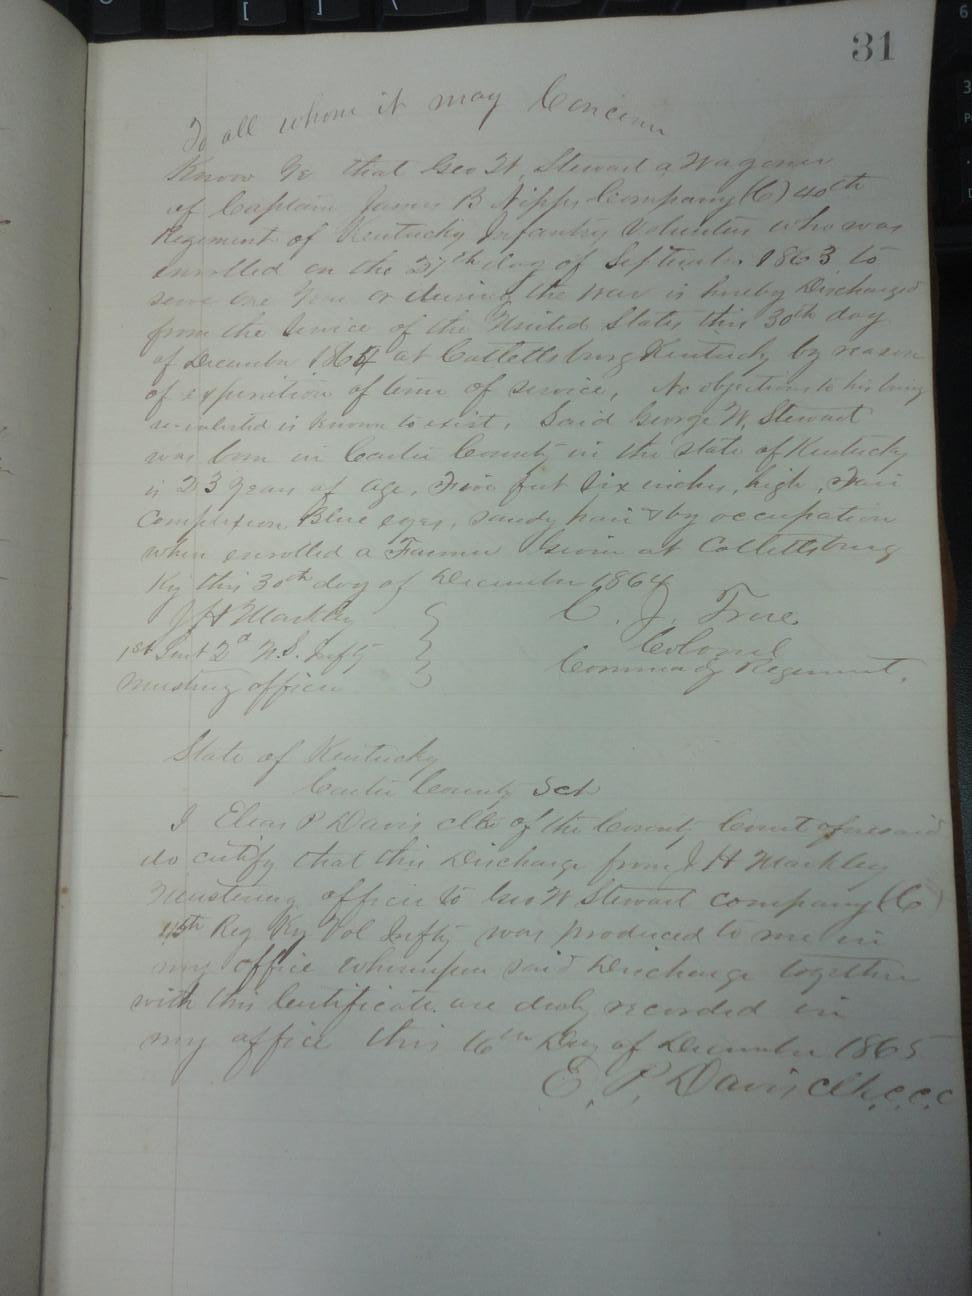 31
To all whom it may Concern
Know Ye that Geo W. Stewart a Wagoner
of Captain James B Nipps Company (C) 40th
Regiment of Kentucky Infantry Volunteers who was
enrolled on the 27th day of September 1863 to
serve one Year or during the War is hereby Discharged
from the Service of the United States this 30th day
of December 1864 at Catlettsburg Kentucky by reason
of expiration of term of service, No objections to his being
re-enlisted is known to exist. Said George W. Stewart
was born in Carter County in the State of Kentucky
is 23 Years of age, Five feet Six inches, high, Fair
Complexion Blue eyes, sandy hair & by occupation
when enrolled a Farmer at Catlettsburg
Ky this 30th day of December 1864
J H Markley C. J. True
1st Lieut 2d U.S. Infty Colonel
Mustring officer Commandg Regiment.
State of Kentucky
Carter County Sct
I Elias P Davis Clk of the County Court aforesaid
do certify that this Discharge from J H Markley
Mustering officer to Geo W Stewart company (C)
Reg Ky Vol Infty was produced to me in
my office Whereupon said Discharge together
with this Certificate are duly recorded in
my office this 16th Day of December 1865
E. P. Davis Clk. C. C. C